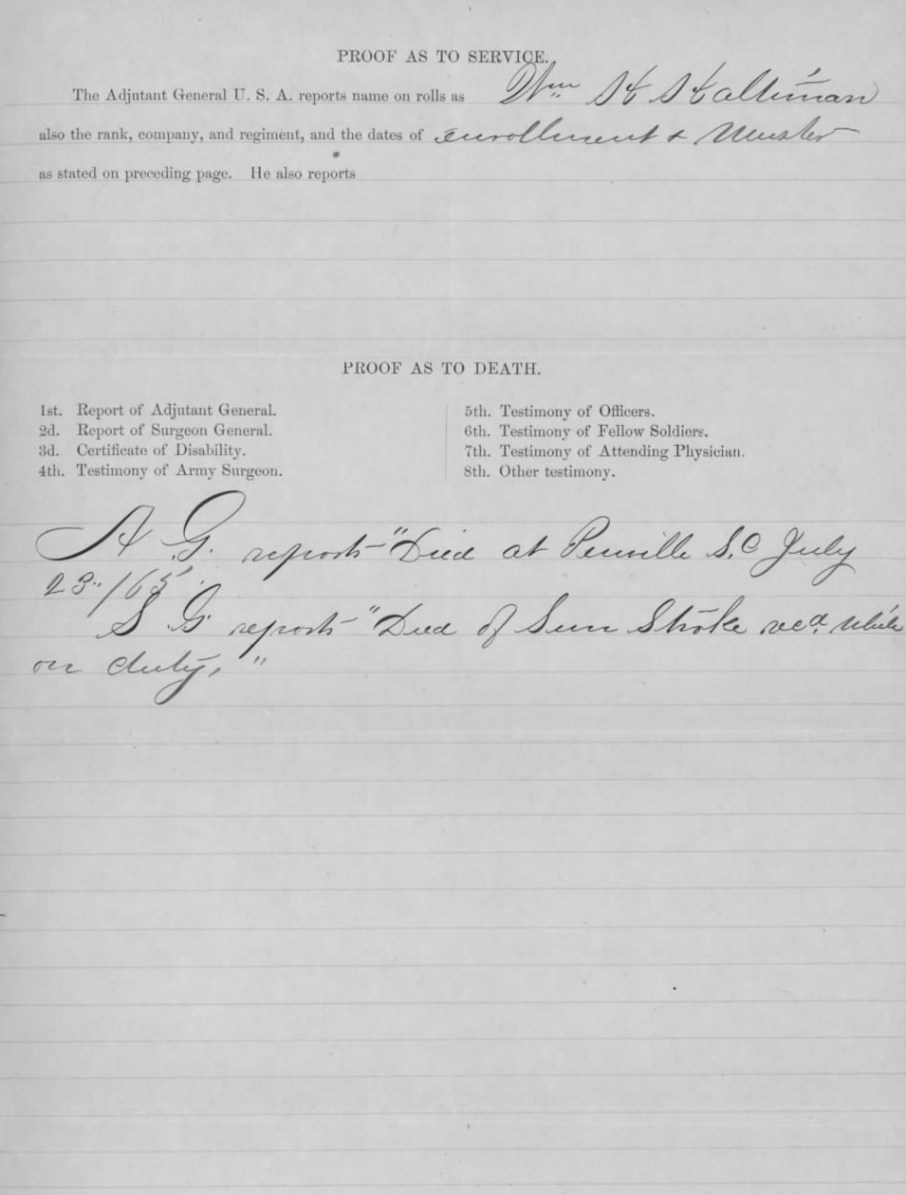 PROOF AS TO SERVICE.
The Adjutant General U. S. A. reports name on rolls as Wm H Haltiman
also the rank, company, and regiment, and the dates of enrollment & Muster
as stated on preceding page. He also reports
PROOF AS TO DEATH.
1st. Report of Adjutant General.
2d. Report of Surgeon General.
3d. Certificate of Disability.
4th. Testimony of Army Surgeon.
5th. Testimony of Officers.
6th. Testimony of Fellow Soldiers.
7th. Testimony of Attending Physician.
8th. Other testimony.
A G. reports "Died at S.C July
23"/65".
S G reports "Died of Sun Stroke recd. while
on duty."